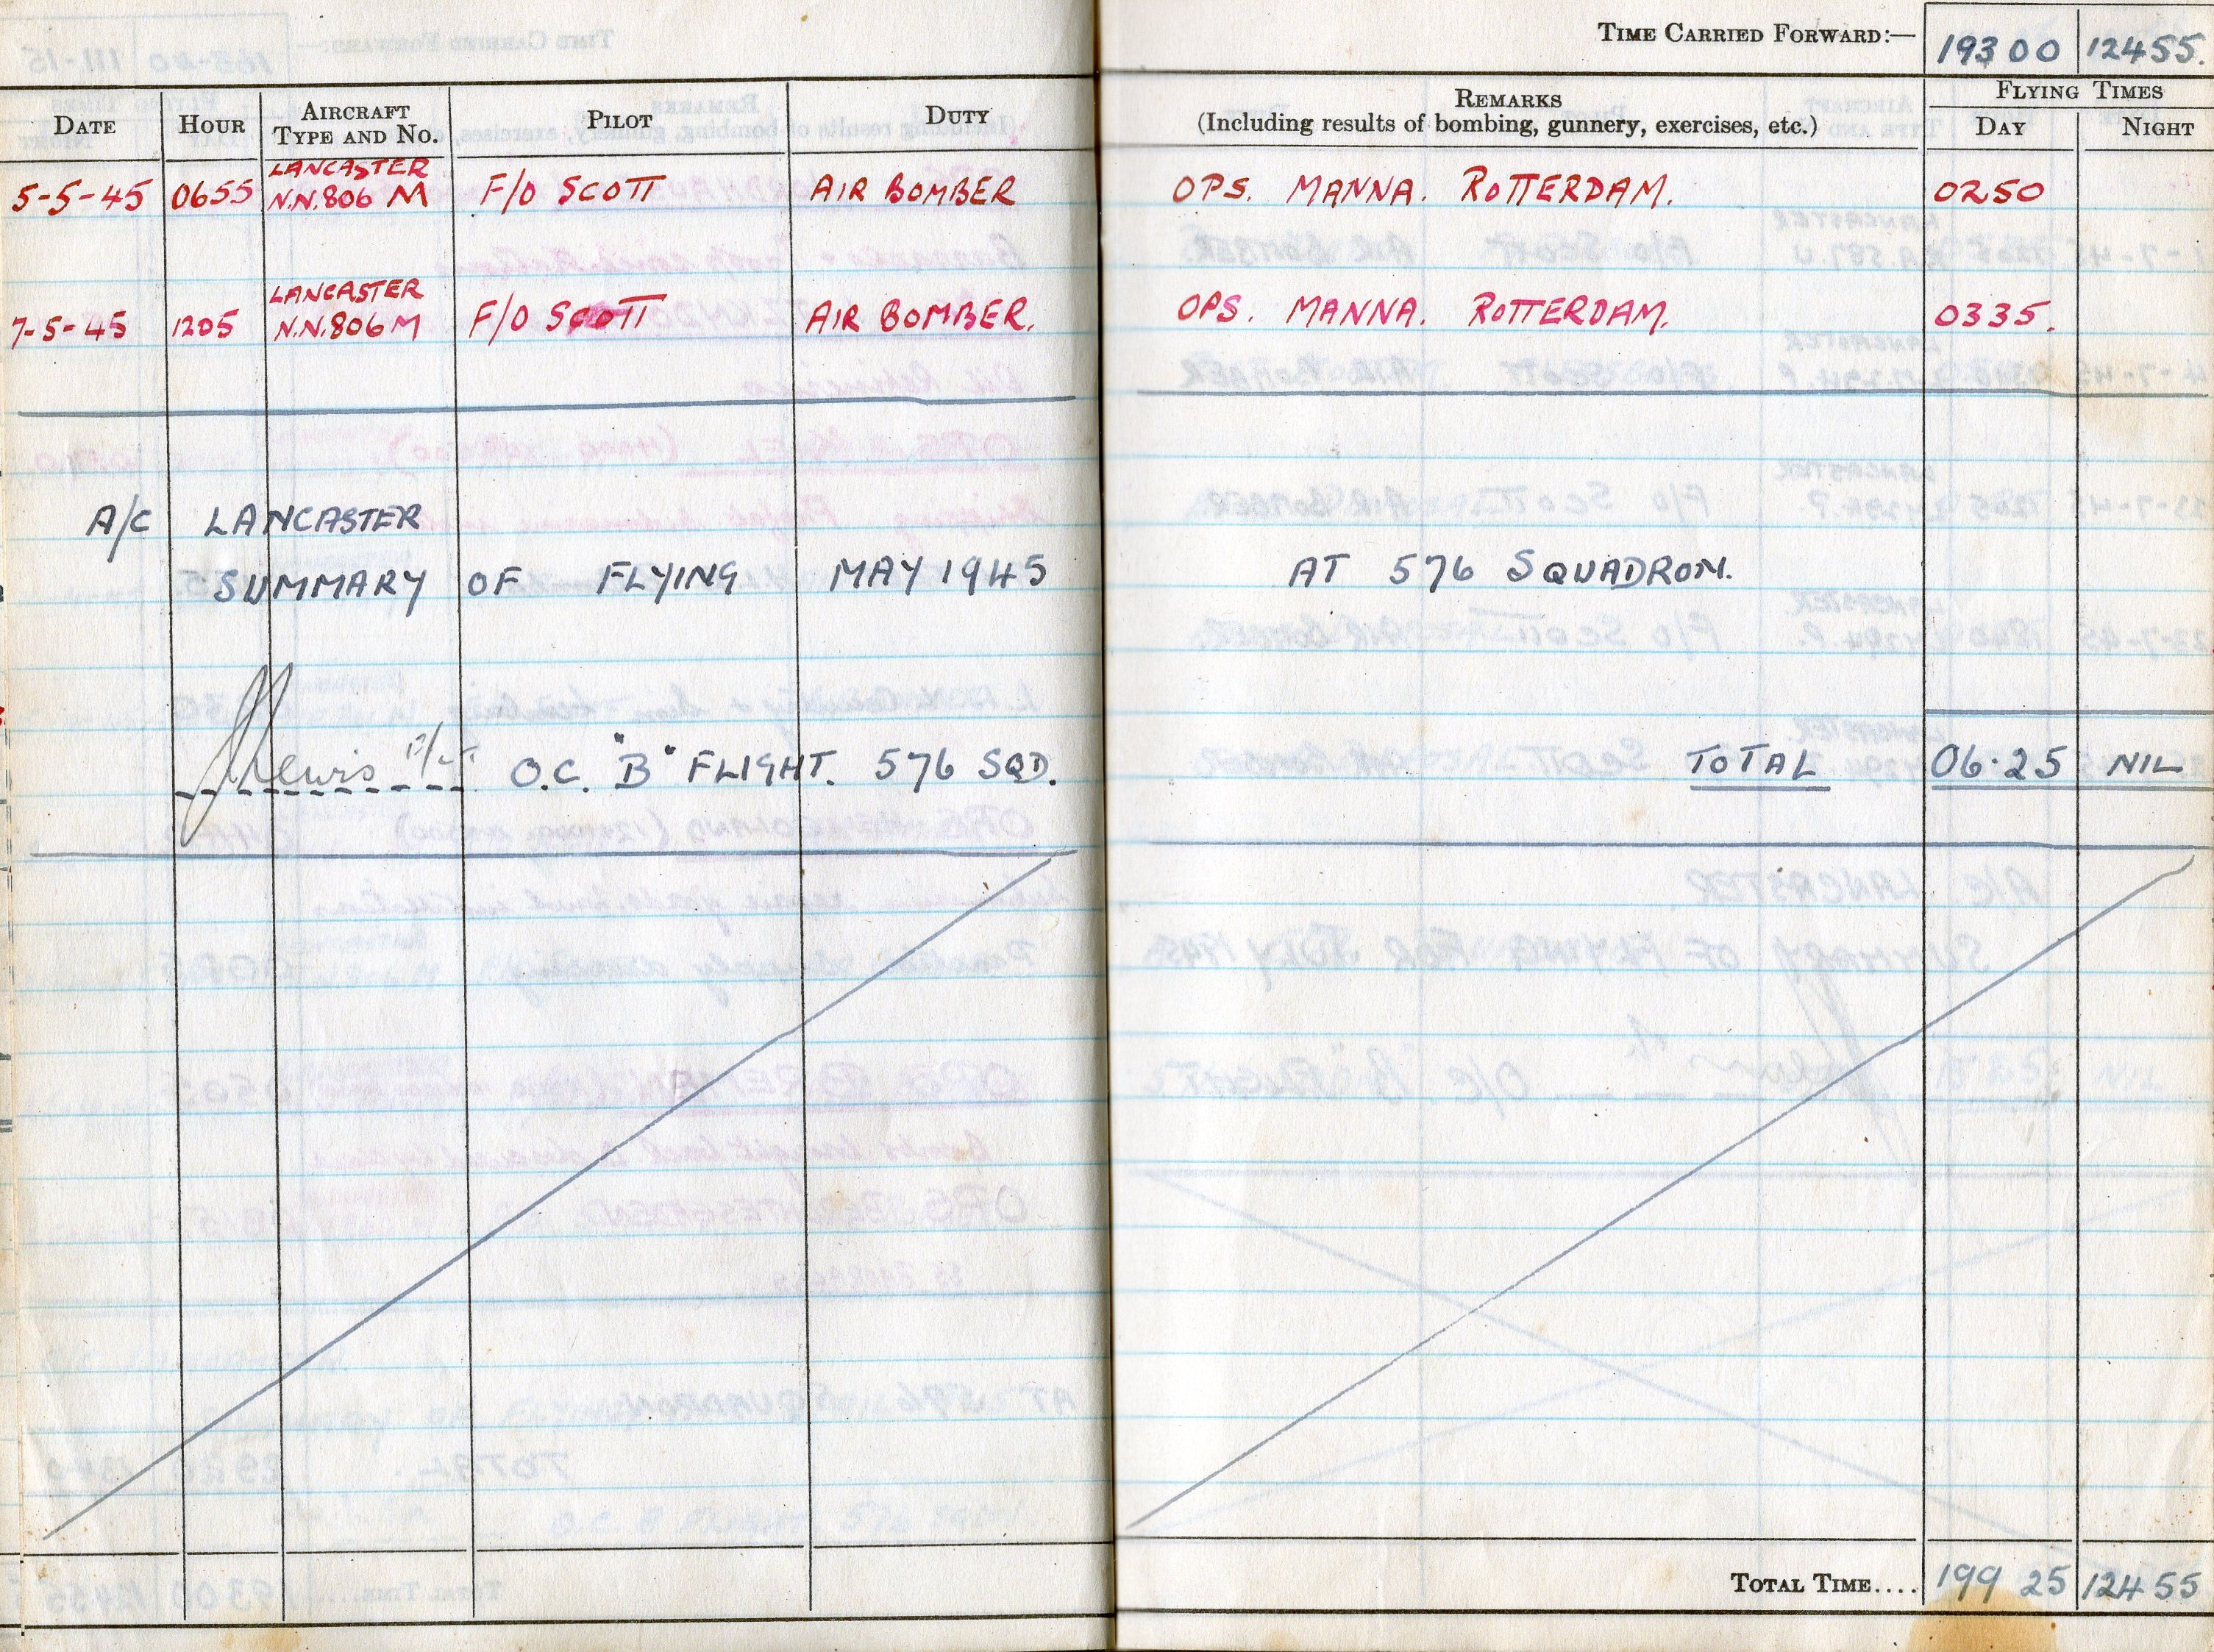 TIME CARRIED FORWARD:— 193 00 124 55.
DATE HOUR AIRCRAFT TYPE AND NO. PILOT DUTY REMARKS (Including results of bombing, gunnery, exercises, etc.) FLYING TIMES DAY NIGHT
5-5-45 0655 LANCASTER N.N.806 M F/O SCOTT AIR BOMBER OPS. MANNA. ROTTERDAM. 0250
7-5-45 1205 LANCASTER N.N.806 M F/O SCOTT AIR BOMBER. OPS. MANNA. ROTTERDAM. 0335.
A/C LANCASTER
SUMMARY OF FLYING MAY 1945 AT 576 SQUADRON.
O.C. "B" FLIGHT. 576 SQD. TOTAL 06·25 NIL
TOTAL TIME.... 199 25 124 55